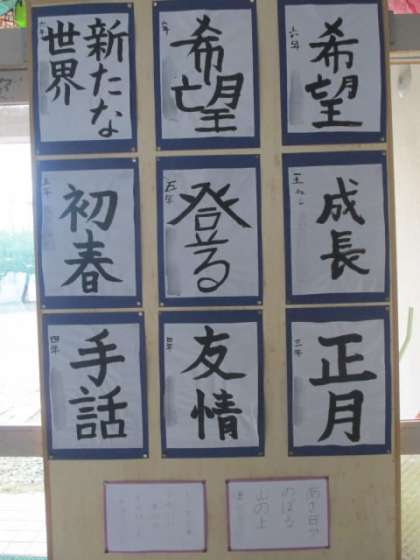 希望
六年
希望
六年
新たな
世界
六年
成長
登る
五年
初春
五年
正月
三年
友情
四年
手話
四年
あさ日が
のぼる
山の上